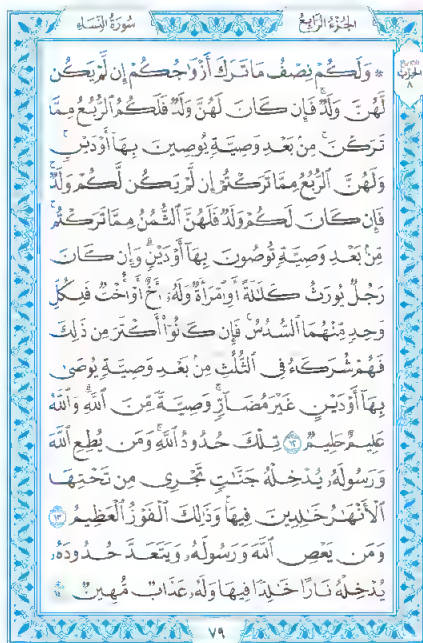 الجُزْءُ الرَّابِعُ
سُورَةُ النِّسَاءِ
الحِزْب
٨
* وَلَكُمْ نِصْفُ مَا تَرَكَ أَزْوَاجُكُمْ إِن لَّمْ يَكُن
لَّهُنَّ وَلَدٌ فَإِن كَانَ لَهُنَّ وَلَدٌ فَلَكُمُ الرُّبُعُ مِمَّا
تَرَكْنَ مِنۢ بَعْدِ وَصِيَّةٍ يُوصِينَ بِهَآ أَوْ دَيْنٍ
وَلَهُنَّ الرُّبُعُ مِمَّا تَرَكْتُمْ إِن لَّمْ يَكُن لَّكُمْ وَلَدٌ
فَإِن كَانَ لَكُمْ وَلَدٌ فَلَهُنَّ الثُّمُنُ مِمَّا تَرَكْتُم
مِّنۢ بَعْدِ وَصِيَّةٍ تُوصُونَ بِهَآ أَوْ دَيْنٍ وَإِن كَانَ
رَجُلٌ يُورَثُ كَلَٰلَةً أَوِ امْرَأَةٌ وَلَهُۥٓ أَخٌ أَوْ أُخْتٌ فَلِكُلِّ
وَٰحِدٍ مِّنْهُمَا السُّدُسُ فَإِن كَانُوٓا۟ أَكْثَرَ مِن ذَٰلِكَ
فَهُمْ شُرَكَآءُ فِى الثُّلُثِ مِنۢ بَعْدِ وَصِيَّةٍ يُوصَىٰ
بِهَآ أَوْ دَيْنٍ غَيْرَ مُضَآرٍّ وَصِيَّةً مِّنَ اللَّهِ وَاللَّهُ
عَلِيمٌ حَلِيمٌ ١٢ تِلْكَ حُدُودُ اللَّهِ وَمَن يُطِعِ اللَّهَ
وَرَسُولَهُۥ يُدْخِلْهُ جَنَّٰتٍ تَجْرِى مِن تَحْتِهَا
الْأَنْهَٰرُ خَٰلِدِينَ فِيهَا وَذَٰلِكَ الْفَوْزُ الْعَظِيمُ ١٣
وَمَن يَعْصِ اللَّهَ وَرَسُولَهُۥ وَيَتَعَدَّ حُدُودَهُۥ
يُدْخِلْهُ نَارًا خَٰلِدًا فِيهَا وَلَهُۥ عَذَابٌ مُّهِينٌ ١٤
٧٩